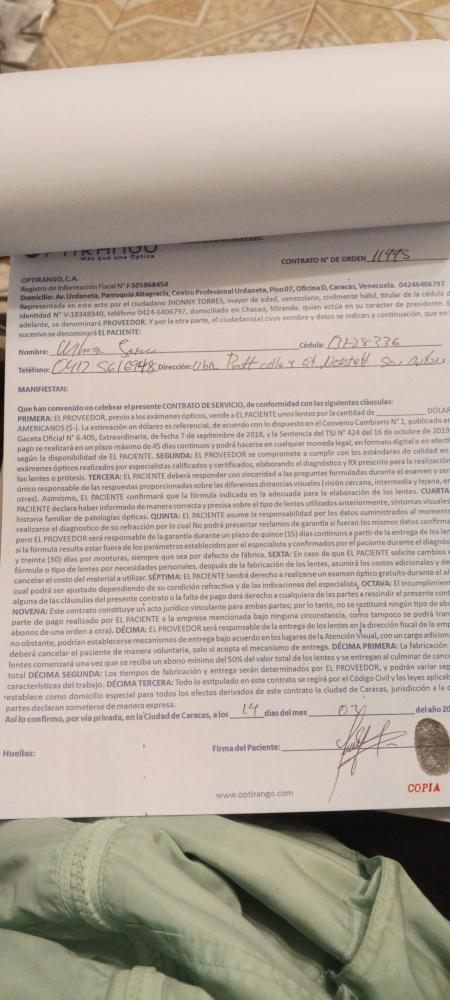 OPTIRANGO
Más que una Óptica
CONTRATO N° DE ORDEN 11995
OPTIRANGO, C.A.
Registro de Información Fiscal N° J-505868454
Domicilio: Av. Urdaneta, Parroquia Altagracia, Centro Profesional Urdaneta, Piso 07, Oficina D, Caracas, Venezuela. 04246406797
Representada en este acto por el ciudadano JHONNY TORRES, mayor de edad, venezolano, civilmente hábil, titular de la cédula d
identidad N° V-18348340, teléfono 0424-6406797, domiciliado en Chacao, Miranda, quien actúa en su carácter de presidente. E
adelante, se denominará PROVEEDOR. Y por la otra parte, el ciudadano(a) cuyo nombre y datos se indican a continuación, que en
sucesivo se denominará EL PACIENTE:
Nombre: Cédula:
Teléfono: Dirección:
MANIFIESTAN:
Que han convenido en celebrar el presente CONTRATO DE SERVICIO, de conformidad con las siguientes cláusulas:
PRIMERA: EL PROVEEDOR, previo a los exámenes ópticos, vende a EL PACIENTE unos lentes por la cantidad de DÓLAR
AMERICANOS ($-). La estimación en dólares es referencial, de acuerdo con lo dispuesto en el Convenio Cambiario N° 1, publicado e
Gaceta Oficial N° 6.405, Extraordinaria, de fecha 7 de septiembre de 2018, y la Sentencia del TSJ N° 424 del 16 de octubre de 2019
pago se realizará en un plazo máximo de 45 días continuos y podrá hacerse en cualquier moneda legal, en formato digital o en efecti
según la disponibilidad de EL PACIENTE. SEGUNDA: EL PROVEEDOR se compromete a cumplir con los estándares de calidad en
exámenes ópticos realizados por especialistas calificados y certificados, elaborando el diagnóstico y RX prescrito para la realización
los lentes o prótesis. TERCERA: EL PACIENTE deberá responder con sinceridad a las preguntas formuladas durante el examen y ser
único responsable de las respuestas proporcionadas sobre las diferentes distancias visuales (visión cercana, intermedia y lejana, en
otras). Asimismo, EL PACIENTE confirmará que la fórmula indicada es la adecuada para la elaboración de los lentes. CUARTA
PACIENTE declara haber informado de manera correcta y precisa sobre el tipo de lentes utilizados anteriormente, síntomas visuales
historia familiar de patologías ópticas. QUINTA: EL PACIENTE asume la responsabilidad por los datos suministrados al moment
realizarse el diagnostico de su refracción por lo cual No podrá presentar reclamos de garantía si fueran los mismos datos confirma
pero EL PROVEEDOR será responsable de la garantía durante un plazo de quince (15) días continuos a partir de la entrega de los len
si la fórmula resulta estar fuera de los parámetros establecidos por el especialista y confirmados por el paciente durante el diagnós
y treinta (30) días por monturas, siempre que sea por defecto de fábrica. SEXTA: En caso de que EL PACIENTE solicite cambios e
fórmula o tipo de lentes por necesidades personales, después de la fabricación de los lentes, asumirá los costos adicionales y de
cancelar el costo del material a utilizar. SÉPTIMA: EL PACIENTE tendrá derecho a realizarse un examen óptico gratuito durante el añ
cual podrá ser ajustado dependiendo de su condición refractiva y de las indicaciones del especialista, OCTAVA: El incumplimien
alguna de las cláusulas del presente contrato o la falta de pago dará derecho a cualquiera de las partes a rescindir el presente cont
NOVENA: Este contrato constituye un acto jurídico vinculante para ambas partes; por lo tanto, no se restituirá ningún tipo de ab
parte de pago realizado por EL PACIENTE a la empresa mencionada bajo ninguna circunstancia, como tampoco se podrá tran
abonos de una orden a otra). DÉCIMA: EL PROVEEDOR será responsable de la entrega de los lentes en la dirección fiscal de la emp
no obstante, podrían establecerse mecanismos de entrega bajo acuerdo en los lugares de la Atención Visual, con un cargo adicion
deberá cancelar el paciente de manera voluntaria, solo si acepta el mecanismo de entrega. DÉCIMA PRIMERA: La fabricación
lentes comenzará una vez que se reciba un abono mínimo del 50% del valor total de los lentes y se entregan al culminar de canc
total DÉCIMA SEGUNDA: Los tiempos de fabricación y entrega serán determinados por EL PROVEEDOR, y podrán variar seg
características del trabajo. DÉCIMA TERCERA: Todo lo estipulado en este contrato se regirá por el Código Civil y las leyes aplicab
establece como domicilio especial para todos los efectos derivados de este contrato la ciudad de Caracas, jurisdicción a la c
partes declaran someterse de manera expresa.
Así lo confirmo, por vía privada, en la Ciudad de Caracas, a los 14 días del mes 03 del año 20
Huellas: Firma del Paciente:
www.optirango.com COPIA